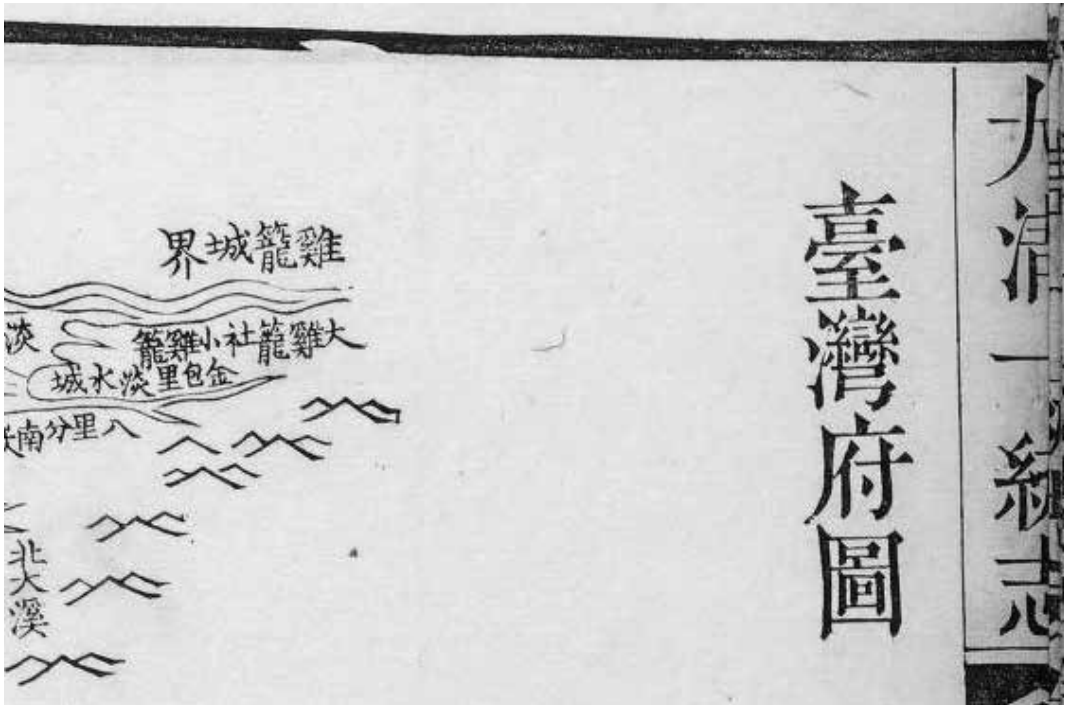 大清一統志
臺灣府圖
雞籠城界
大雞籠社小雞籠
金包里淡水城
淡
八里分南
北大溪